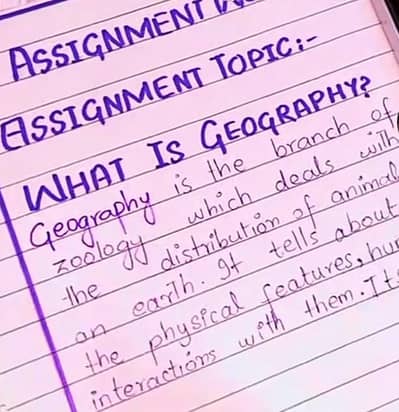 ASSIGNMENT
ASSIGNMENT TOPIC:-
WHAT IS GEOGRAPHY?
Geography is the branch of
zoology which deals with
the distribution of animal
on earth. It tells about
the physical features, hum
interactions with them. Its